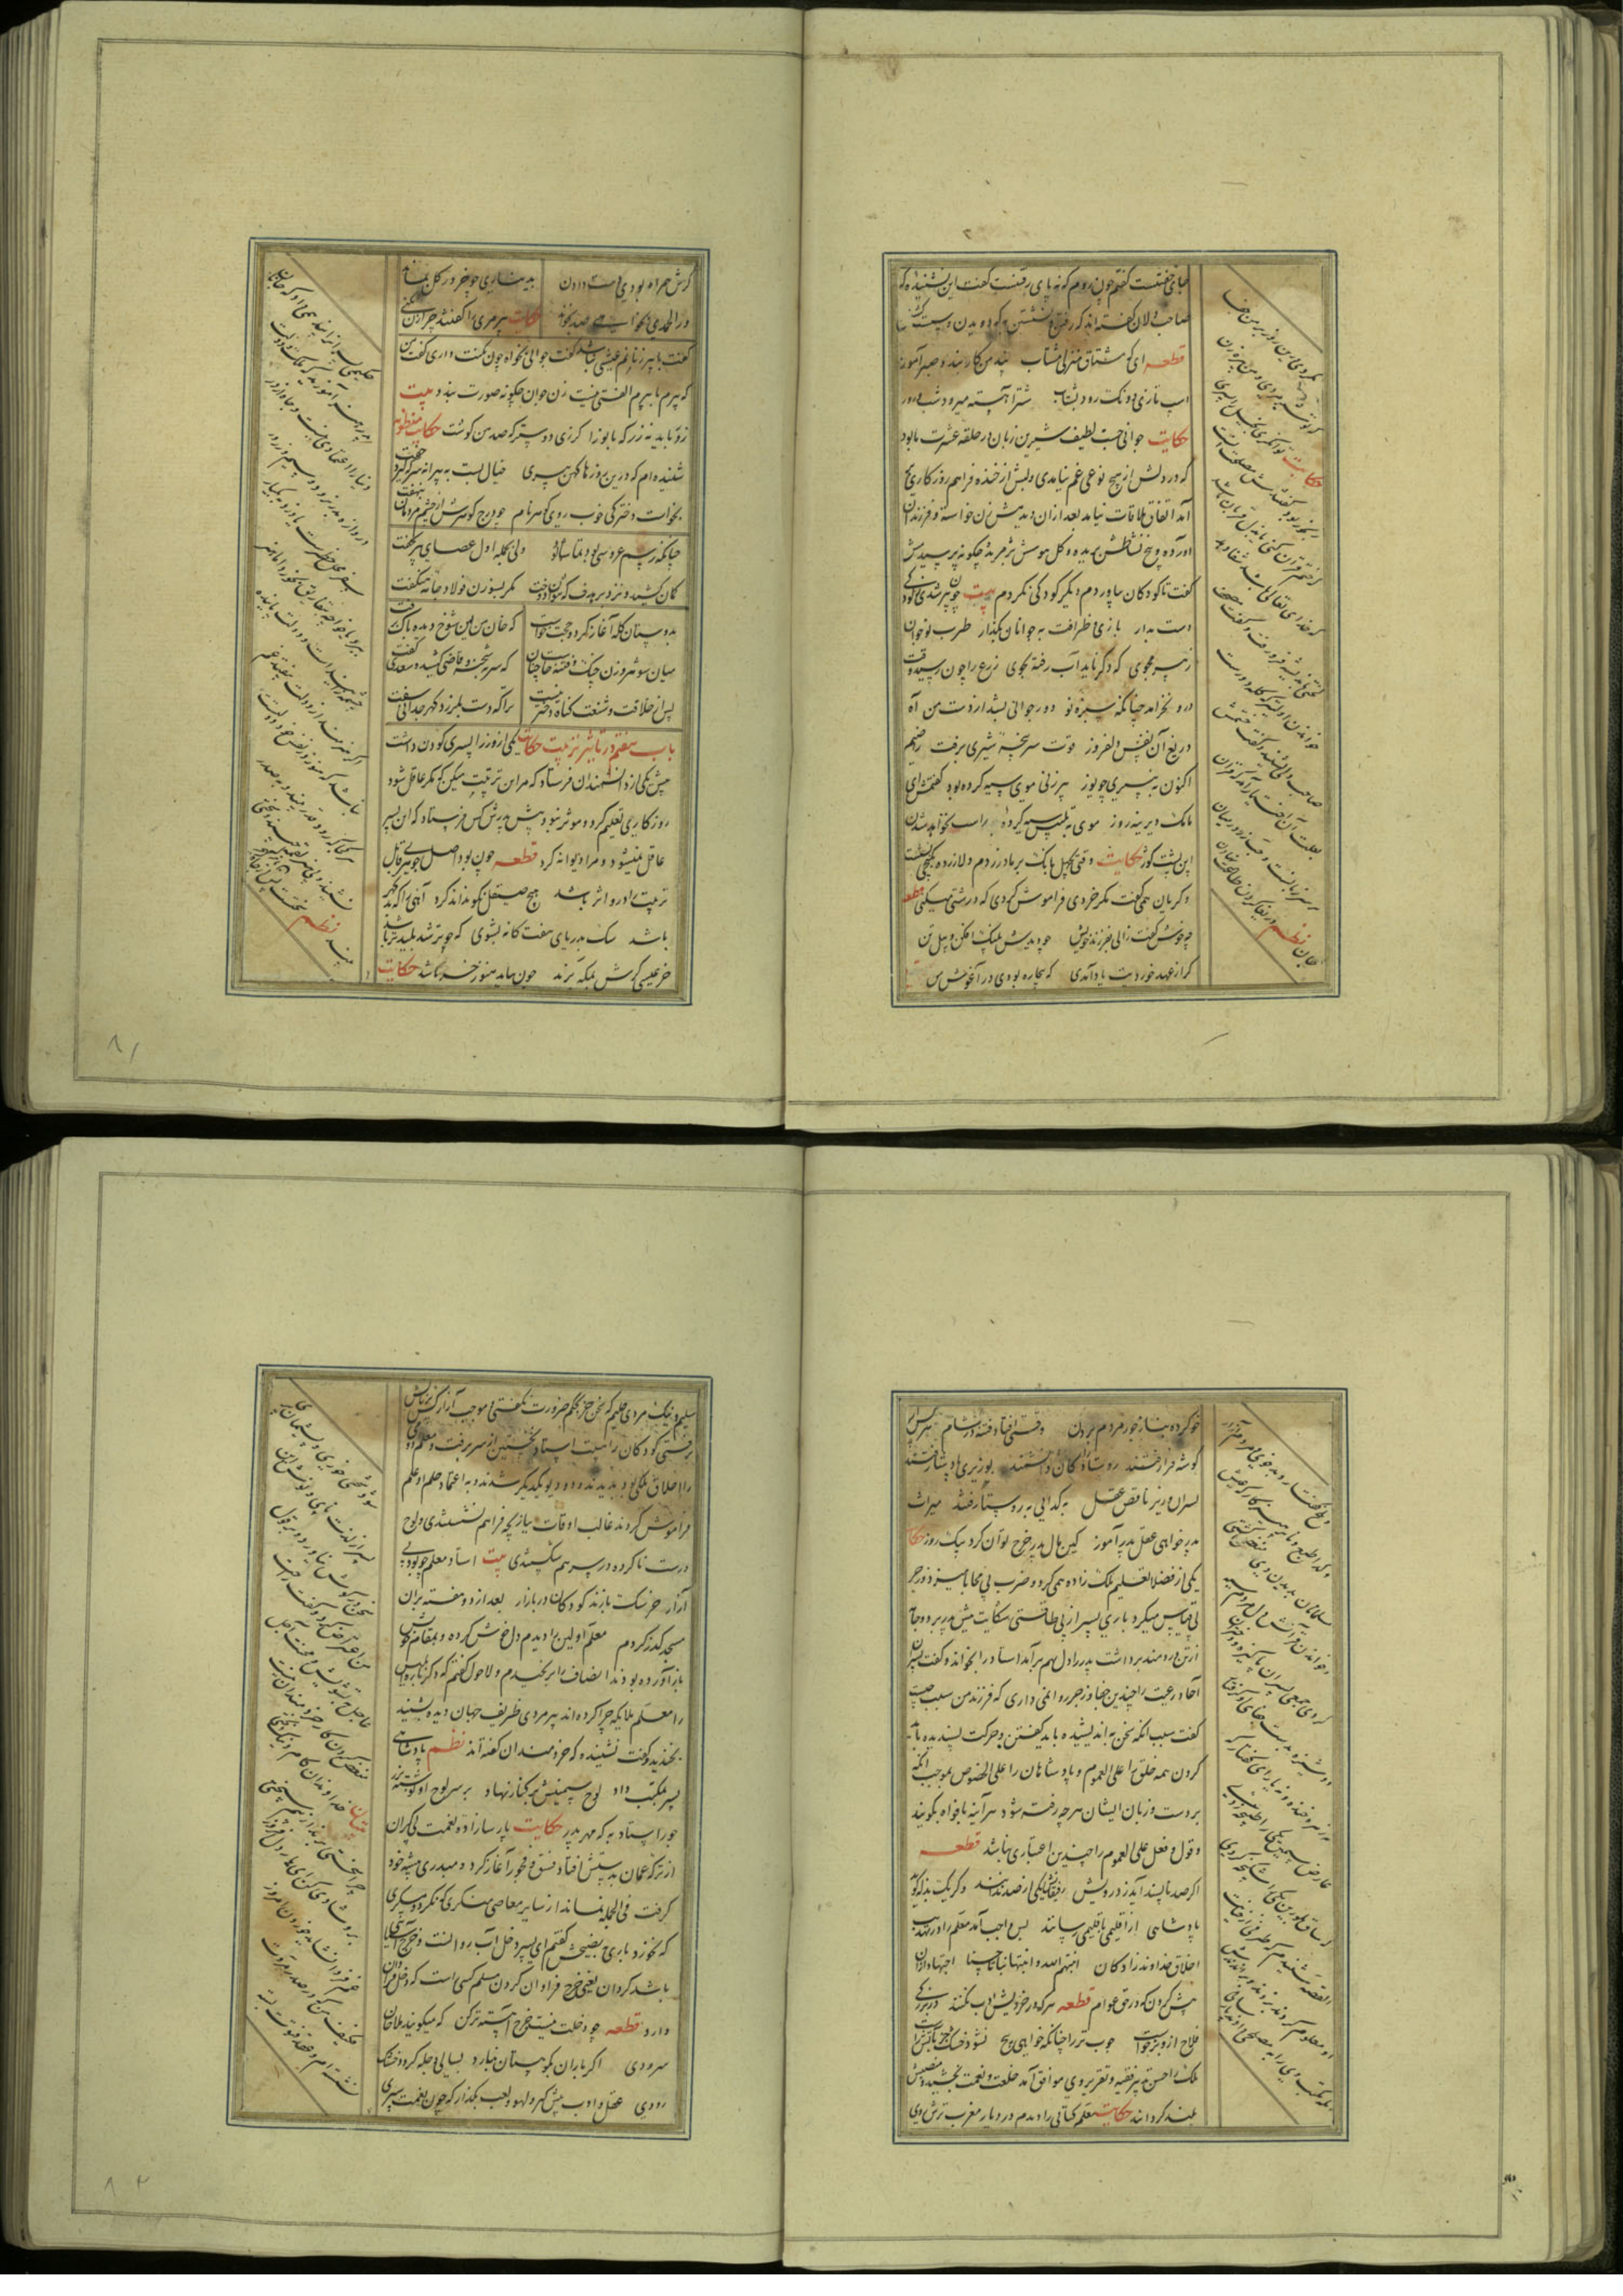 جای خفتنست گفتم چون روم که نه پای رفتنست گفت این نشنیده‌ که
صاحب دلان گفته اند که رفتن و نشستن به که دویدن و
قطعه ای که مشتاق منزلی مشتاب پند من کار بند و صبر آموز
اسب تازی دو تک رود بشتاب شتر آهسته میرود شب و روز
حکایت جوانی چست لطیف شیرین زبان در حلقه عشرت ما بود
که در دلش از هیچ نوعی غم نیامدی و لبش از خنده فراهم روزگاری بر
آمد اتفاق ملاقات نیامد بعد از ان دیدمش زن خواسته و فرزندان
آورده و بیخ نشاطش بریده و کل هوس پژمریده چگونه پرسیدمش
گفت تا کودکان بیاوردم دیگر کودکی نکردم بیت چون پیر شدی ز کودکی
دست بدار بازی و ظرافت به جوانان بگذار طرب نوجوان
ز پیر مجوی که دگر ناید آب رفته بجوی زرع را چون رسید وقت
درو نخرامد چنانکه سبزه نو دور جوانی بشد از دست من آه
دریغ آن نفس دلفروز قوت سرپنجه شیری برفت راضیم
اکنون به پنیری چو یوز پیرزنی موی سیه کرده بود گفتمش ای
مامک دیرینه روز موی به تلبیس سیه کرده راست نخواهد شدن
این پشت کوز حکایت وقتی بجهل بانگ بر مادر زدم دلازرده بکنجی نشست
و گریان همی گفت مگر خردی فراموش کردی که درشتی میکنی قطعه
چه خوش گفت زالی بفرزند خویش چو دیدش پلنگ افکن و پیل تن
گر از عهد خوردیت یاد آمدی که بیچاره بودی در آغوش من
نکردی این روز بر من جفا
که تو شیر مردی و من پیرزن
حکایت توانگری بخیل را پسری
رنجور بود گفتندش مصلحت آنست
که ختم قرآن کنی یا بذل قربان باشد
که خدای تعالی شفا دهد
لختی باندیشه فرو رفت و گفت مصحف
خواندن اولیتر که گله دورست
صاحب دلی بشنید و گفت ختمش
بعلت آن اختیار آمد که قرآن
بر سر زبانست و زر در میان
جان نظم دریغا گردن طاعت نهادن
گرش همراه بودی دست دادن بدیناری چو خر در گل بمانند
ور الحمدی بخواهی صد بخوانند حکایت پیرمردی را گفتند چرا زن نکنی
گفت با پیرزنانم عیشی نباشد گفت جوانی بخواه چون مکنت داری گفت من
که پیرم با پیرم الفتی نیست زن جوان چگونه صورت بندد بیت
زور باید نه زر که بانو را گزری دوستتر که صد من گوشت حکایت منظوم
شنیده ام که درین روزها کهن پیری خیال بست به پیرانه سر که گیرد جفت
بخواست دخترکی خوب روی گوهر نام چو درج گوهرش از چشم مردمان بنهفت
چنانکه رسم عروسی بود تماشا بود ولی بحمله اول عصای پیر بخفت
کمان کشید و نزد بر هدف که نتوان دوخت مگر بسوزن فولاد جامه هنگفت
بدوستان گله آغاز کرد و حجت خواست که خان من این شوخ دیده پاک برفت
میان شوهر و زن جنگ و فتنه خاست چنان که سر بشحنه و قاضی کشید و سعدی گفت
پس از خلافت و شنعت گناه دختر نیست ترا که دست بلرزد گهر چه دانی سفت
باب هفتم در تاثیر تربیت حکایت یکی از وزرا پسری کودن داشت
پیش یکی از دانشمندان فرستاد که مر این را تربیت میکن که مگر عاقل شود
روزگاری تعلیم کرد و موثر نبود پیش پدرش کس فرستاد که این پسر
عاقل نمیشود و مرا دیوانه کرد قطعه چون بود اصل جوهری قابل
تربیت را درو اثر باشد هیچ صیقل نکو نداند کرد آهنی را که بد گهر
باشد سگ بدریای هفت گانه بشوی که چو تر شد پلیدتر باشد
خر عیسی گرش بمکه برند چون بیاید هنوز خر باشد حکایت
حکیمی پسرانرا پند همی داد که جانان
پدر هنر آموزید که ملک و دولت
دنیا را اعتماد نیست و جاه از در
دروازه بدر نرود و سیم و زر در
سفر محل خطرست یا دزد بیکبار
ببرد یا خواجه بتفاریق بخورد اما هنر
چشمه زاینده است و دولت پاینده
اگر هنرمند از دولت بیفتد غم
نباشد که هنر در نفس خود دولتست
هر کجا که رود قدر بیند و بر صدر
نشیند و بی هنر لقمه چیند و سختی
بیند نظم
سختست پس از جاه
خو کرده بناز جور مردم بردن وقتی افتاد فتنه در شام هر کس از
گوشه فرا رفتند روستازادگان دانشمند بوزیری پادشا رفتند
پسران وزیر ناقص عقل به گدایی به روستا رفتند میراث
پدر خواهی علم پدر آموز کین مال پدر خرج توان کرد بیک روز حکایت
یکی از فضلا تعلیم ملک زاده همی کرد و ضرب بی محابا میزد و زجر
بی قیاس میکرد باری پسر از بی طاقتی شکایت پیش پدر برد و جامه
از تن دردمند برداشت پدر را دل بهم برآمد استاد را بخواند و گفت پسران
آحاد رعیت را چندین جفا و زجر روا نمی داری که فرزند من سبب چیست
گفت سبب آنکه سخن به اندیشیده باید گفتن و حرکت پسندیده باید
کردن همه خلق را علی العموم و پادشاهان را علی الخصوص بموجب آنکه
بر دست و زبان ایشان هر چه رفته شود هر آینه بافواه بگویند
و قول و فعل علی العموم را چندین اعتباری نباشد قطعه
اگر صد ناپسند آید ز درویش رفیقانش یکی از صد ندانند و گر یک بذله گوید
پادشاهی از اقلیمی باقلیمی رسانند پس واجب آمد معلم را در تهذیب
اخلاق خداوند زادگان انبتهم الله و انبتها نباتا حسنا اجتهاد از آن
بیش کردن که در حق عوام قطعه هر که در خردیش ادب نکنند در بزرگی
فلاح ازو برخاست چوب تر را چنانکه خواهی پیچ نشود خشک جز بآتش راست
ملک را حسن تدبیر فقیه و تقریر وی موافق آمد خلعت و نعمت بخشید و منصبش
بلند گردانید حکایت معلم کتابی را دیدم در دیار مغرب ترش روی
تلخ گفتار و بدخوی مردم آزار
و گدا طبع و ناپرهیزکار که عیش
مسلمانان بدیدن وی
و خواندن قرآنش دل مردم سیه
کردی جمعی پسران پاکیزه و دختران
دوشیزه بدست جفای او گرفتار
نه زهره خنده و نه یارای گفتار گه
عارض سیمین یکی را طپانچه زدی
گه ساق بلورین یکی را شکنجه کردی
القصه شنیدم که طرفی از خباثت
او معلوم کردند و بزدند و براندند
و مکتب وی را به مصلحی دادند پارسای
سلیم و نیک مردی حلیم که سخن جز بحکم ضرورت نگفتی و موجب آزار کس بر زبانش
نرفتی کودکان را هیبت استاد نخستین از سر برفت و معلم دومی
را اخلاق ملکی بدیدند و دیو یکدیگر شدند و به اعتماد حلم او علم
فراموش کردند غالب اوقات ببازیچه فراهم نشستندی و لوح
درست ناکرده در سر هم شکستندی بیت استاد معلم چو بود بی
آزار خرسک بازند کودکان در بازار بعد از دو هفته بر آن
مسجد گذر کردم معلم اولین را دیدم دل خوش کرده و بمقام خویش
باز آورده بودند انصاف را برنجیدم و لاحول گفتم که دگر باره ابلیس
را معلم ملایکه چرا کرده اند پیرمردی ظریف جهان دیده بشنید
بخندید و گفت نشنیده که خردمندان گفته اند نظم پادشاهی
پسر بمکتب داد لوح سیمینش بر کنار نهاد بر سر لوح او نوشته بزر
جور استاد به که مهر پدر حکایت پارسازاده نعمت بی کران
از ترکه عمان بدستش افتاد فسق و فجور آغاز کرد و مبذری پیشه خود
گرفت فی الجمله نماند از سایر معاصی منکری که نکرد و مسکری
که نخورد باری بنصیحتش گفتم ای پسر دخل آب روانست و خرج آسیای
باشد گردان یعنی خرج فراوان کردن مسلم کسی است که دخل فراوان
دارد قطعه چو دخلت نیست خرج آهسته تر کن که میگویند ملاحان
سرودی اگر باران بکوهستان نبارد بسالی دجله گردد خشک
رودی عقل و ادب پیش گیر و لهو و لعب بگذار که چون نعمت سپری
شود سختی خوری و پشیمان
پسر از لذت نای و نوش این
سخن در گوش نیاورد و بر قول
من اعتراض کرد و گفت راحت
عاجل بتشویش محنت آجل
منغص کردن کار خردمندان نیست
مثنوی خداوندان کام و نیک بختی
چرا سختی برند از بیم سختی
برو شادی کن ای یار دلفروز
غم فردا نشاید خوردن امروز
فکیف من که در صدر مروت
نشسته ام و عقد فتوت بسته